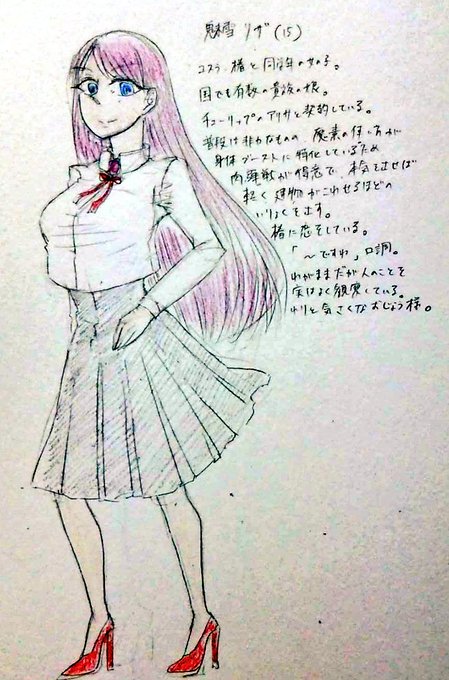 魅雪 リザ (15)
コスラ、椿と同学年の女の子。
国でも有数の貴族の娘。
チューリップのアリサと契約している。
普段は非力なものの 魔素の使い方が
身体ブーストに特化しているため
肉弾戦が得意で、本気を出せば
軽く建物がこわせるほどの
いりょくを出す。
椿に恋をしている。
「~ですわ」口調。
わがままだが人のことを
実はよく観察している。
わりと気さくなおじょう様。